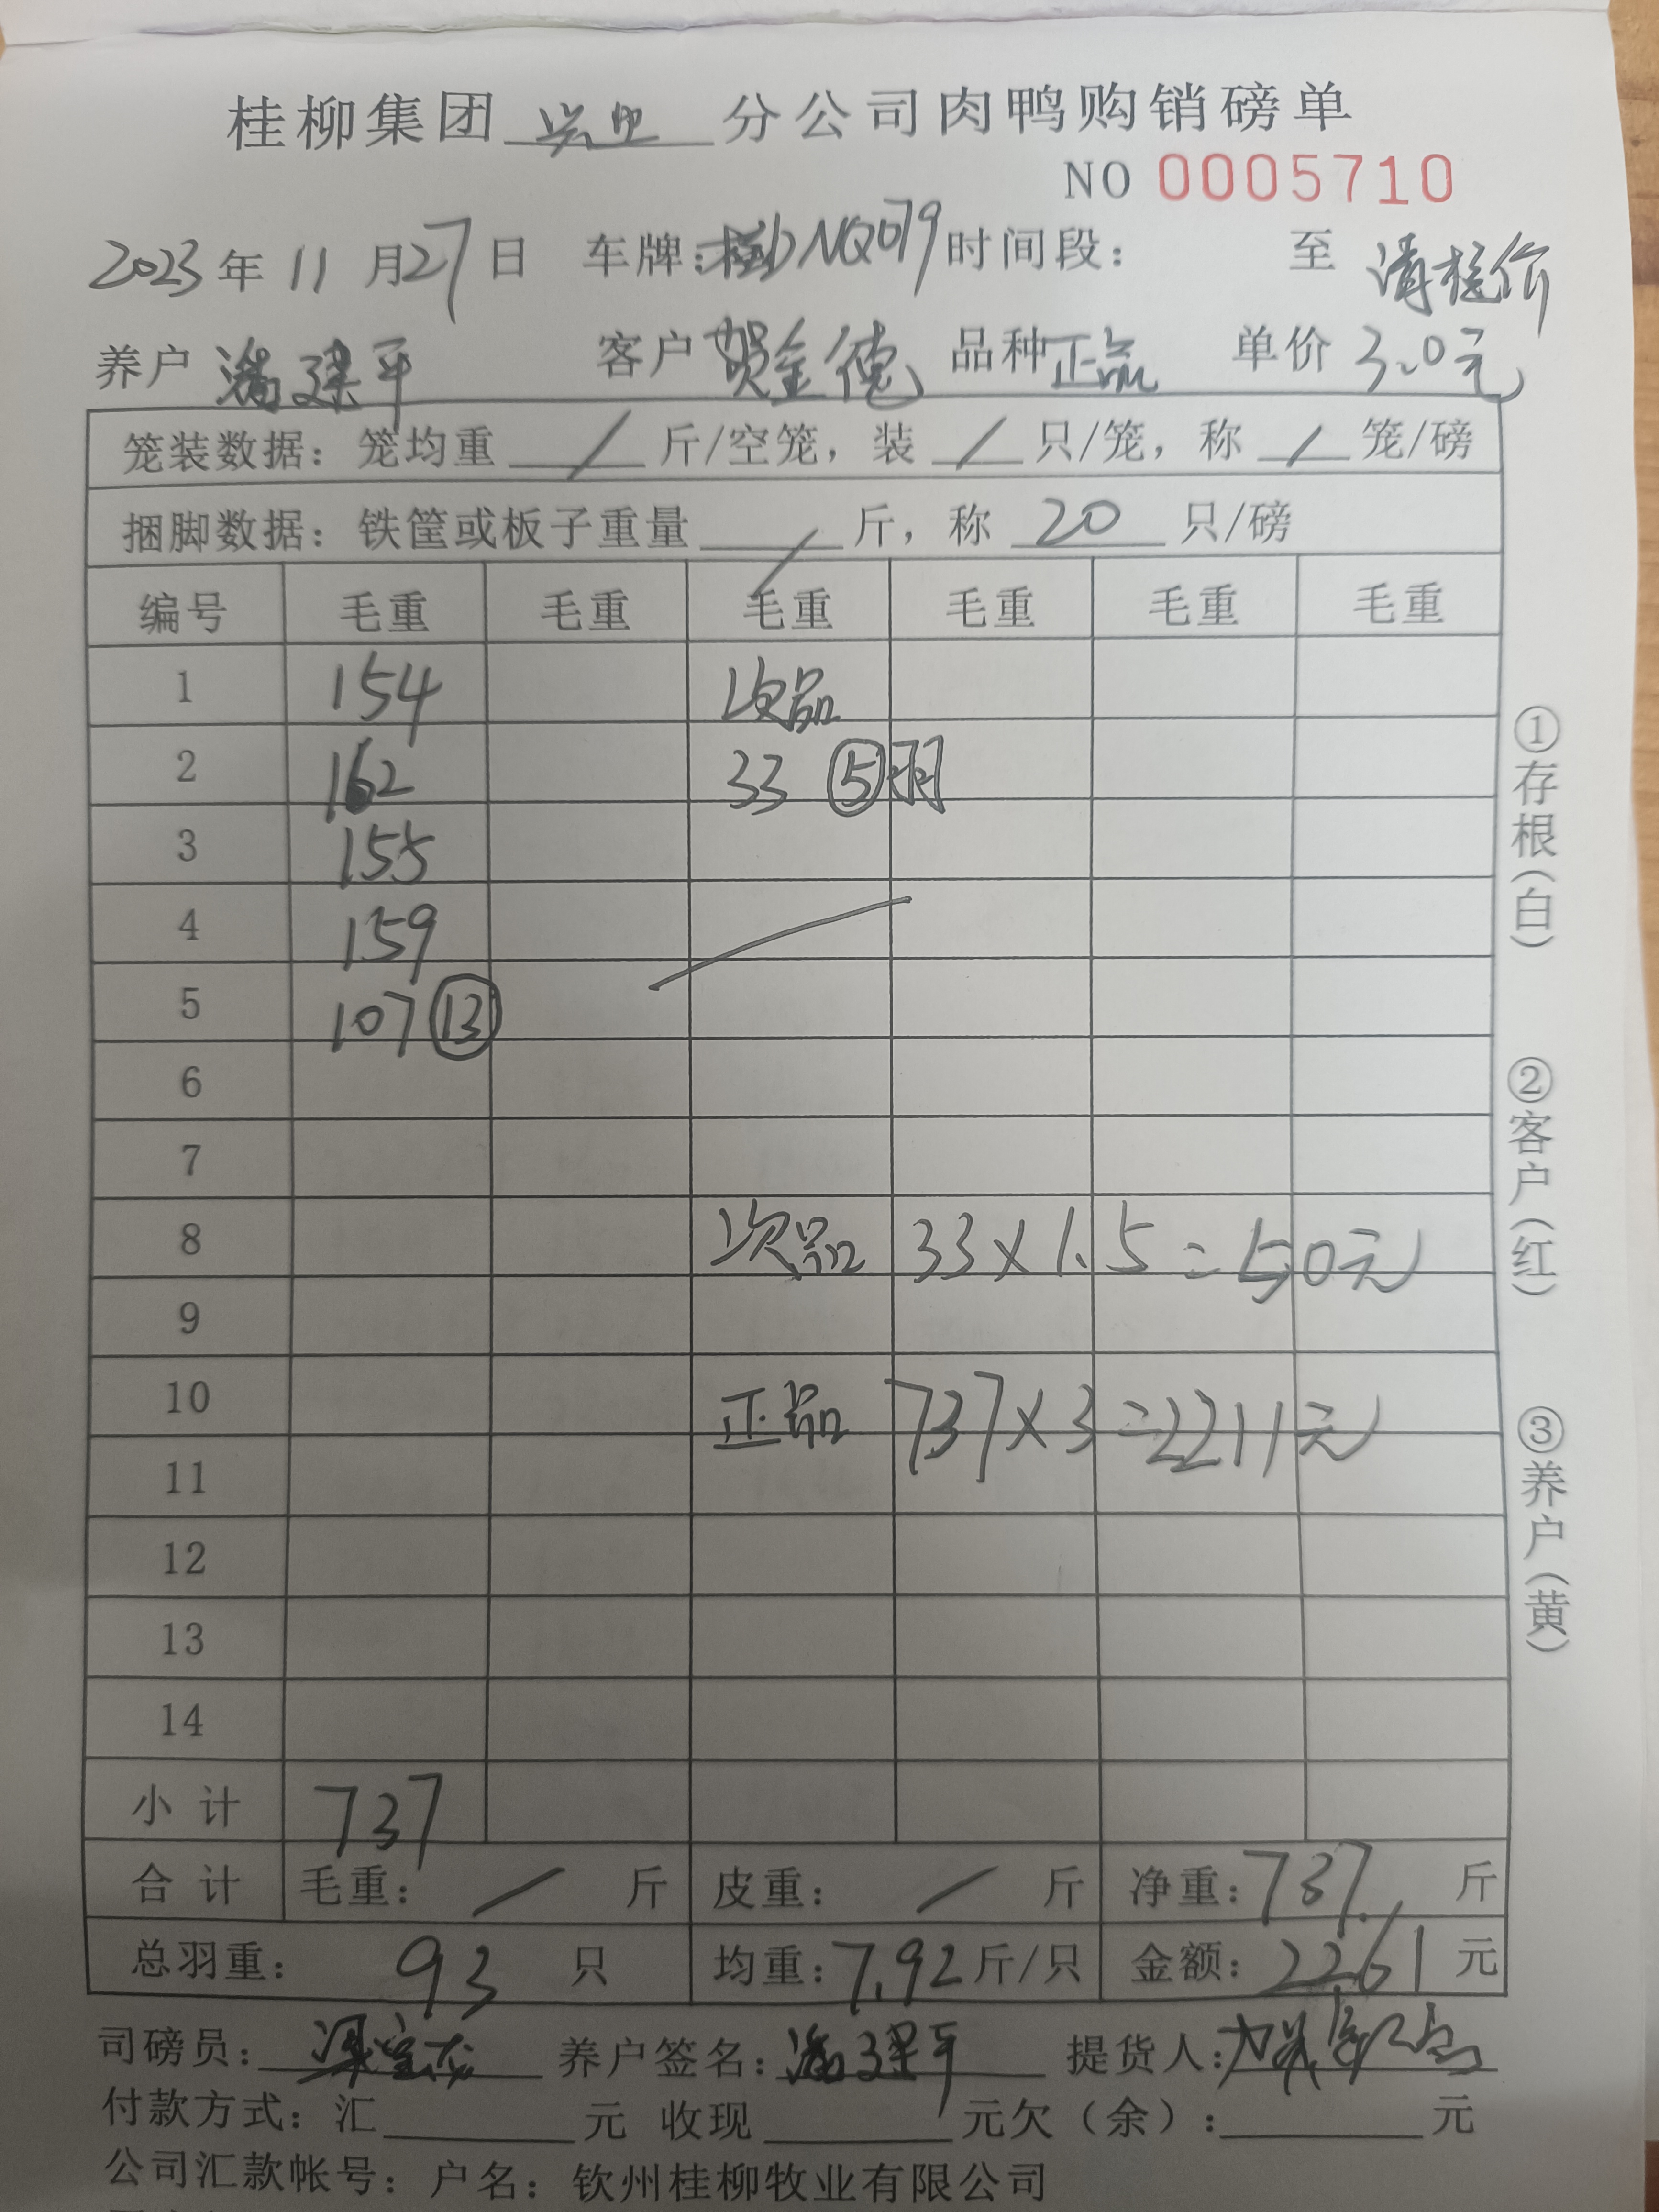 桂柳集团 兴业 分公司肉鸭购销磅单
NO 0005710
2023年 11 月 27 日 车牌: NQ079 时间段: 至 请核价
养户 潘建平 客户 贺金德 品种 正品 单价 3.0元
笼装数据: 笼均重 / 斤/空笼, 装 / 只/笼, 称 / 笼/磅
捆脚数据: 铁筐或板子重量 / 斤, 称 20 只/磅
编号 毛重 毛重 毛重 毛重 毛重 毛重
1 154 次品
2 162 33 ⑤羽
3 155
4 159
5 107 ⑬
6
7
8 次品 33×1.5=50元
9
10 正品 737×3=2211元
11
12
13
14
小计 737
合计 毛重: / 斤 皮重: / 斤 净重: 737. 斤
总羽重: 93 只 均重: 7.92 斤/只 金额: 2261 元
司磅员: 养户签名: 潘建平 提货人:
付款方式: 汇 元 收现 元欠(余): 元
公司汇款帐号: 户名: 钦州桂柳牧业有限公司
①存根(白)
②客户(红)
③养户(黄)